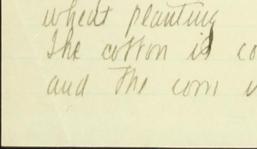 wheat planting
The cotton is co
and the corn